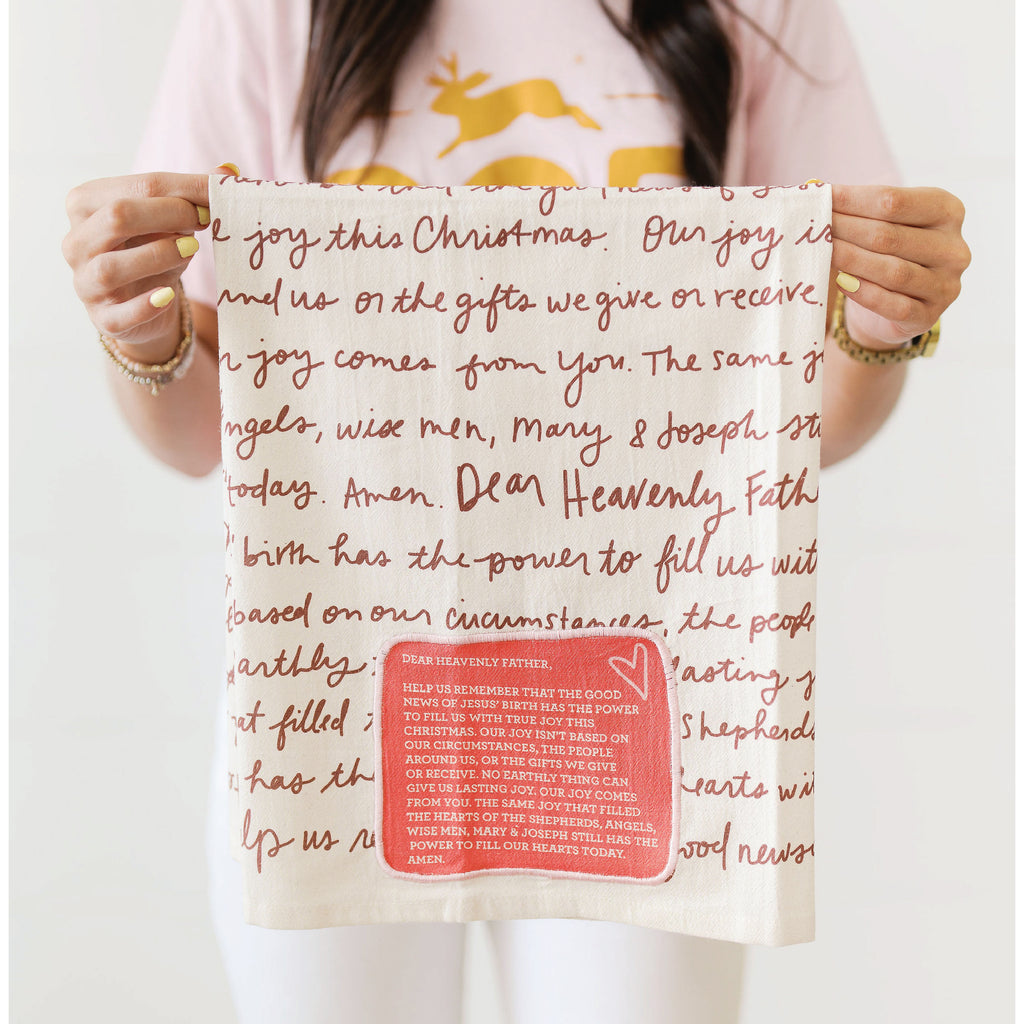 joy this Christmas. Our joy is
us or the gifts we give or receive.
joy comes from You. The same
angels, wise men, Mary & Joseph
today. Amen. Dear Heavenly
birth has the power to fill us
based on our circumstances, the people
earthly lasting
that filled Shepherds
has hearts
us
DEAR HEAVENLY FATHER,
HELP US REMEMBER THAT THE GOOD
NEWS OF JESUS' BIRTH HAS THE POWER
TO FILL US WITH TRUE JOY THIS
CHRISTMAS. OUR JOY ISN'T BASED ON
OUR CIRCUMSTANCES, THE PEOPLE
AROUND US, OR THE GIFTS WE GIVE
OR RECEIVE. NO EARTHLY THING CAN
GIVE US LASTING JOY. OUR JOY COMES
FROM YOU. THE SAME JOY THAT FILLED
THE HEARTS OF THE SHEPHERDS, ANGELS,
WISE MEN, MARY & JOSEPH STILL HAS THE
POWER TO FILL OUR HEARTS TODAY.
AMEN.